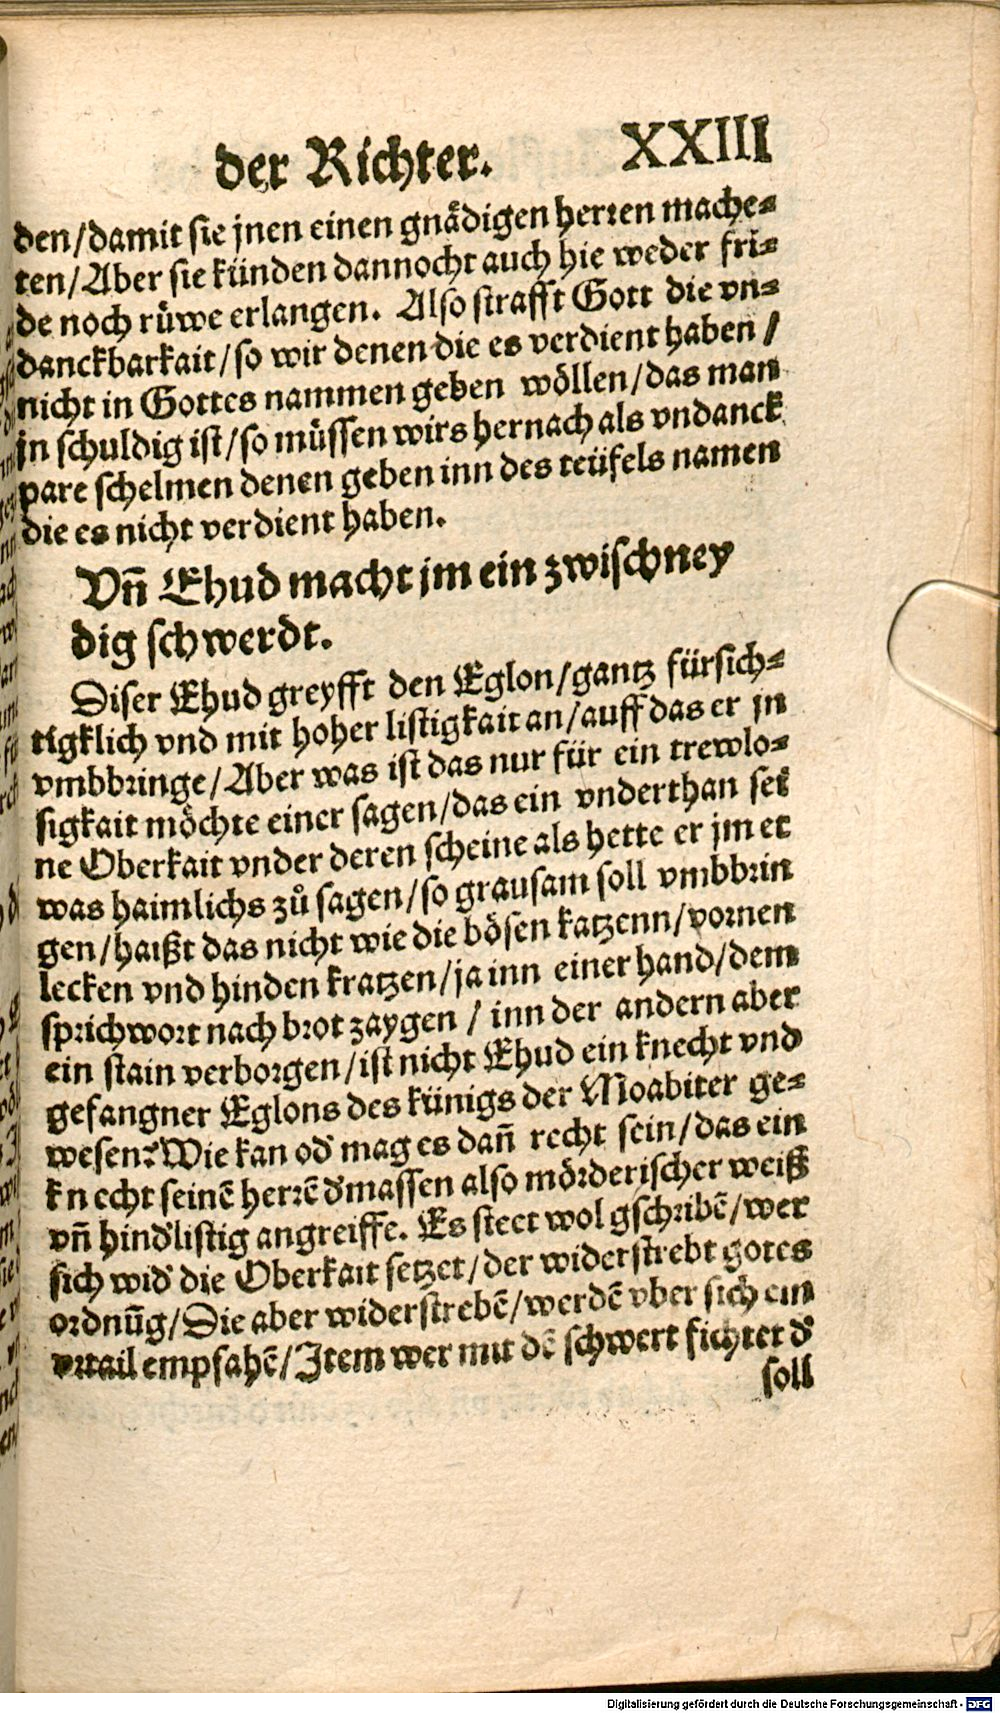 der Richter. XXIII
den/damit sie jnen einen gnådigen herren mache-
ten/Aber sie künden dannocht auch hie weder fri-
de noch růwe erlangen. Also strafft Gott die vn-
danckbarkait/so wir denen die es verdient haben/
nicht in Gottes nammen geben wöllen/das man
jn schuldig ist/so müssen wirs hernach als vndanck
pare schelmen denen geben inn des teüfels namen
die es nicht verdient haben.
Vñ Ehud macht jm ein zwischney
dig schwerdt.
Diser Ehud greyfft den Eglon/gantz fürsich-
tigklich vnd mit hoher listigkait an/auff das er jn
vmbbringe/Aber was ist das nur für ein trewlo-
sigkait möchte einer sagen/das ein vnderthan sei
ne Oberkait vnder deren scheine als hette er jm et
was haimlichs zů sagen/so grausam soll vmbbrin
gen/haißt das nicht wie die bösen katzenn/vornen
lecken vnd hinden kratzen/ja inn einer hand/dem
sprichwort nach brot zaygen/inn der andern aber
ein stain verborgen/ist nicht Ehud ein knecht vnd
gefangner Eglons des künigs der Moabiter ge-
wesen? Wie kan od' mag es dañ recht sein/das ein
kn echt seinē herrē d'massen also mörderischer weiß
vñ hind'listig angreiffe. Es steet wol gschribē/wer
sich wid' die Oberkait setzet/der widerstrebt gotes
ordnūg/Die aber widerstrebē/werdē vber sich ein
vrtail empfahē/Item wer mit dē schwert fichtet d'
soll
Digitalisierung gefördert durch die Deutsche Forschungsgemeinschaft - DFG